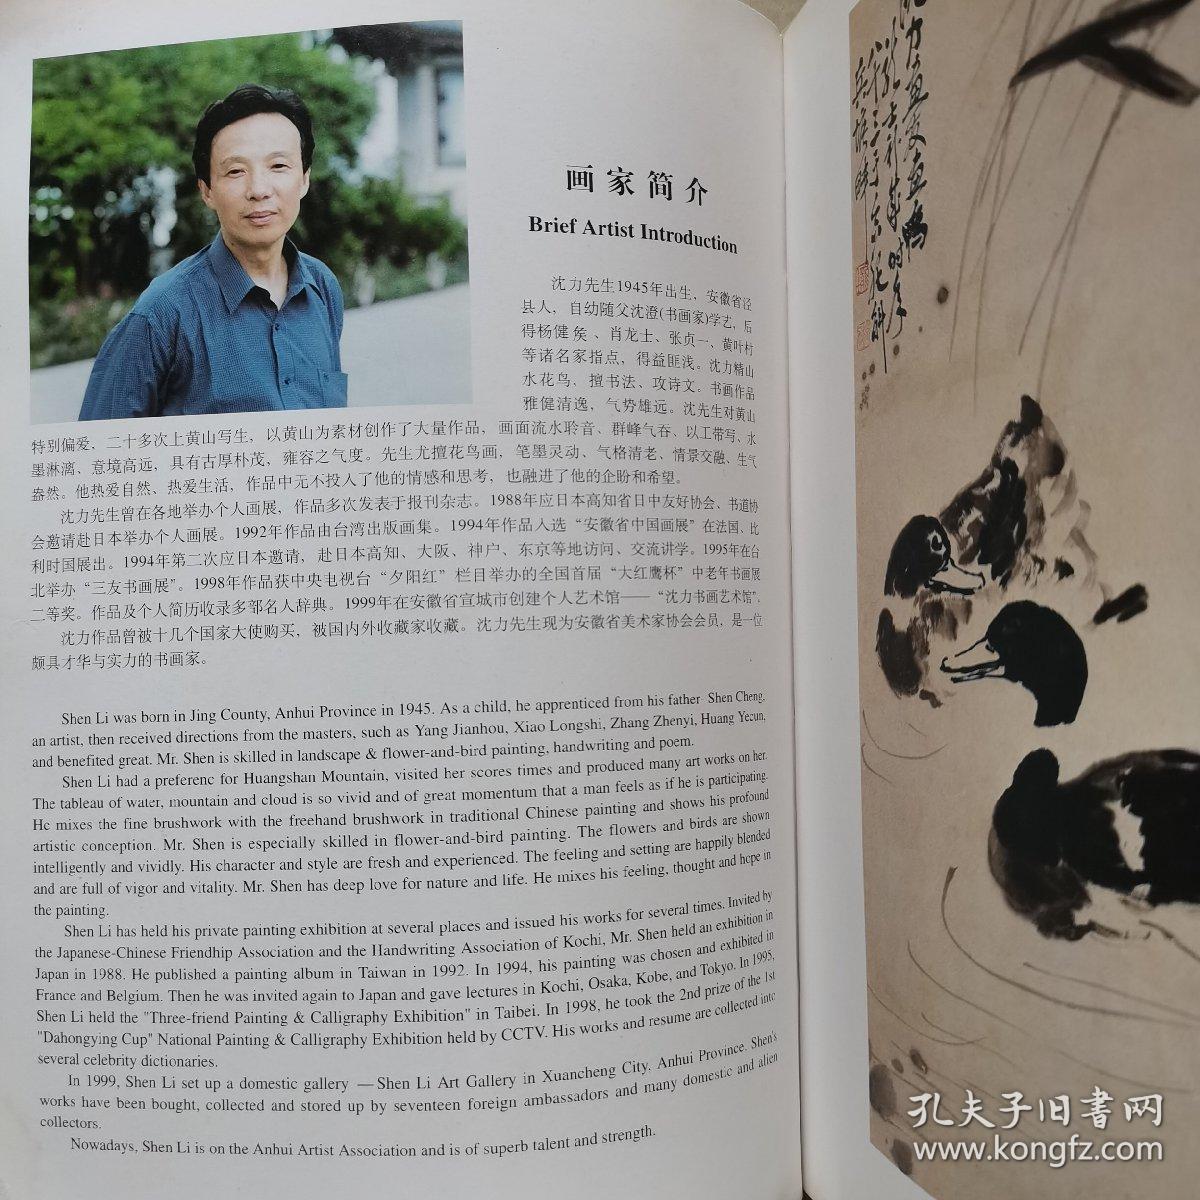 画家简介
Brief Artist Introduction
沈力先生1945年出生，安徽省泾
县人，自幼随父沈澄(书画家)学艺，后
得杨健侯、肖龙士、张贞一、黄叶村
等诸名家指点，得益匪浅。沈力精山
水花鸟、擅书法、攻诗文。书画作品
雅健清逸，气势雄远。沈先生对黄山
特别偏爱，二十多次上黄山写生，以黄山为素材创作了大量作品，画面流水聆音、群峰气吞、以工带写、水
墨淋漓、意境高远，具有古厚朴茂，雍容之气度。先生尤擅花鸟画，笔墨灵动、气格清老、情景交融、生气
盎然。他热爱自然、热爱生活，作品中无不投入了他的情感和思考，也融进了他的企盼和希望。
沈力先生曾在各地举办个人画展，作品多次发表于报刊杂志。1988年应日本高知省日中友好协会、书道协
会邀请赴日本举办个人画展。1992年作品由台湾出版画集。1994年作品入选“安徽省中国画展”在法国、比
利时国展出。1994年第二次应日本邀请，赴日本高知、大阪、神户、东京等地访问、交流讲学。1995年在台
北举办“三友书画展”。1998年作品获中央电视台“夕阳红”栏目举办的全国首届“大红鹰杯”中老年书画展
二等奖。作品及个人简历收录多部名人辞典。1999年在安徽省宣城市创建个人艺术馆——“沈力书画艺术馆”.
沈力作品曾被十几个国家大使购买，被国内外收藏家收藏。沈力先生现为安徽省美术家协会会员，是一位
颇具才华与实力的书画家。
Shen Li was born in Jing County, Anhui Province in 1945. As a child, he apprenticed from his father Shen Cheng,
an artist, then received directions from the masters, such as Yang Jianhou, Xiao Longshi, Zhang Zhenyi, Huang Yecun,
and benefited great. Mr. Shen is skilled in landscape & flower-and-bird painting, handwriting and poem.
Shen Li had a preferenc for Huangshan Mountain, visited her scores times and produced many art works on her.
The tableau of water, mountain and cloud is so vivid and of great momentum that a man feels as if he is participating.
He mixes the fine brushwork with the freehand brushwork in traditional Chinese painting and shows his profound
artistic conception. Mr. Shen is especially skilled in flower-and-bird painting. The flowers and birds are shown
intelligently and vividly. His character and style are fresh and experienced. The feeling and setting are happily blended
and are full of vigor and vitality. Mr. Shen has deep love for nature and life. He mixes his feeling, thought and hope in
the painting.
Shen Li has held his private painting exhibition at several places and issued his works for several times. Invited by
the Japanese-Chinese Friendhip Association and the Handwriting Association of Kochi, Mr. Shen held an exhibition in
Japan in 1988. He published a painting album in Taiwan in 1992. In 1994, his painting was chosen and exhibited in
France and Belgium. Then he was invited again to Japan and gave lectures in Kochi, Osaka, Kobe, and Tokyo. In 1995,
Shen Li held the "Three-friend Painting & Calligraphy Exhibition" in Taibei. In 1998, he took the 2nd prize of the 1st
"Dahongying Cup" National Painting & Calligraphy Exhibition held by CCTV. His works and resume are collected into
several celebrity dictionaries.
In 1999, Shen Li set up a domestic gallery —Shen Li Art Gallery in Xuancheng City, Anhui Province. Shen's
works have been bought, collected and stored up by seventeen foreign ambassadors and many domestic and alien
collectors.
Nowadays, Shen Li is on the Anhui Artist Association and is of superb talent and strength.
孔夫子旧书网
www.kongfz.com